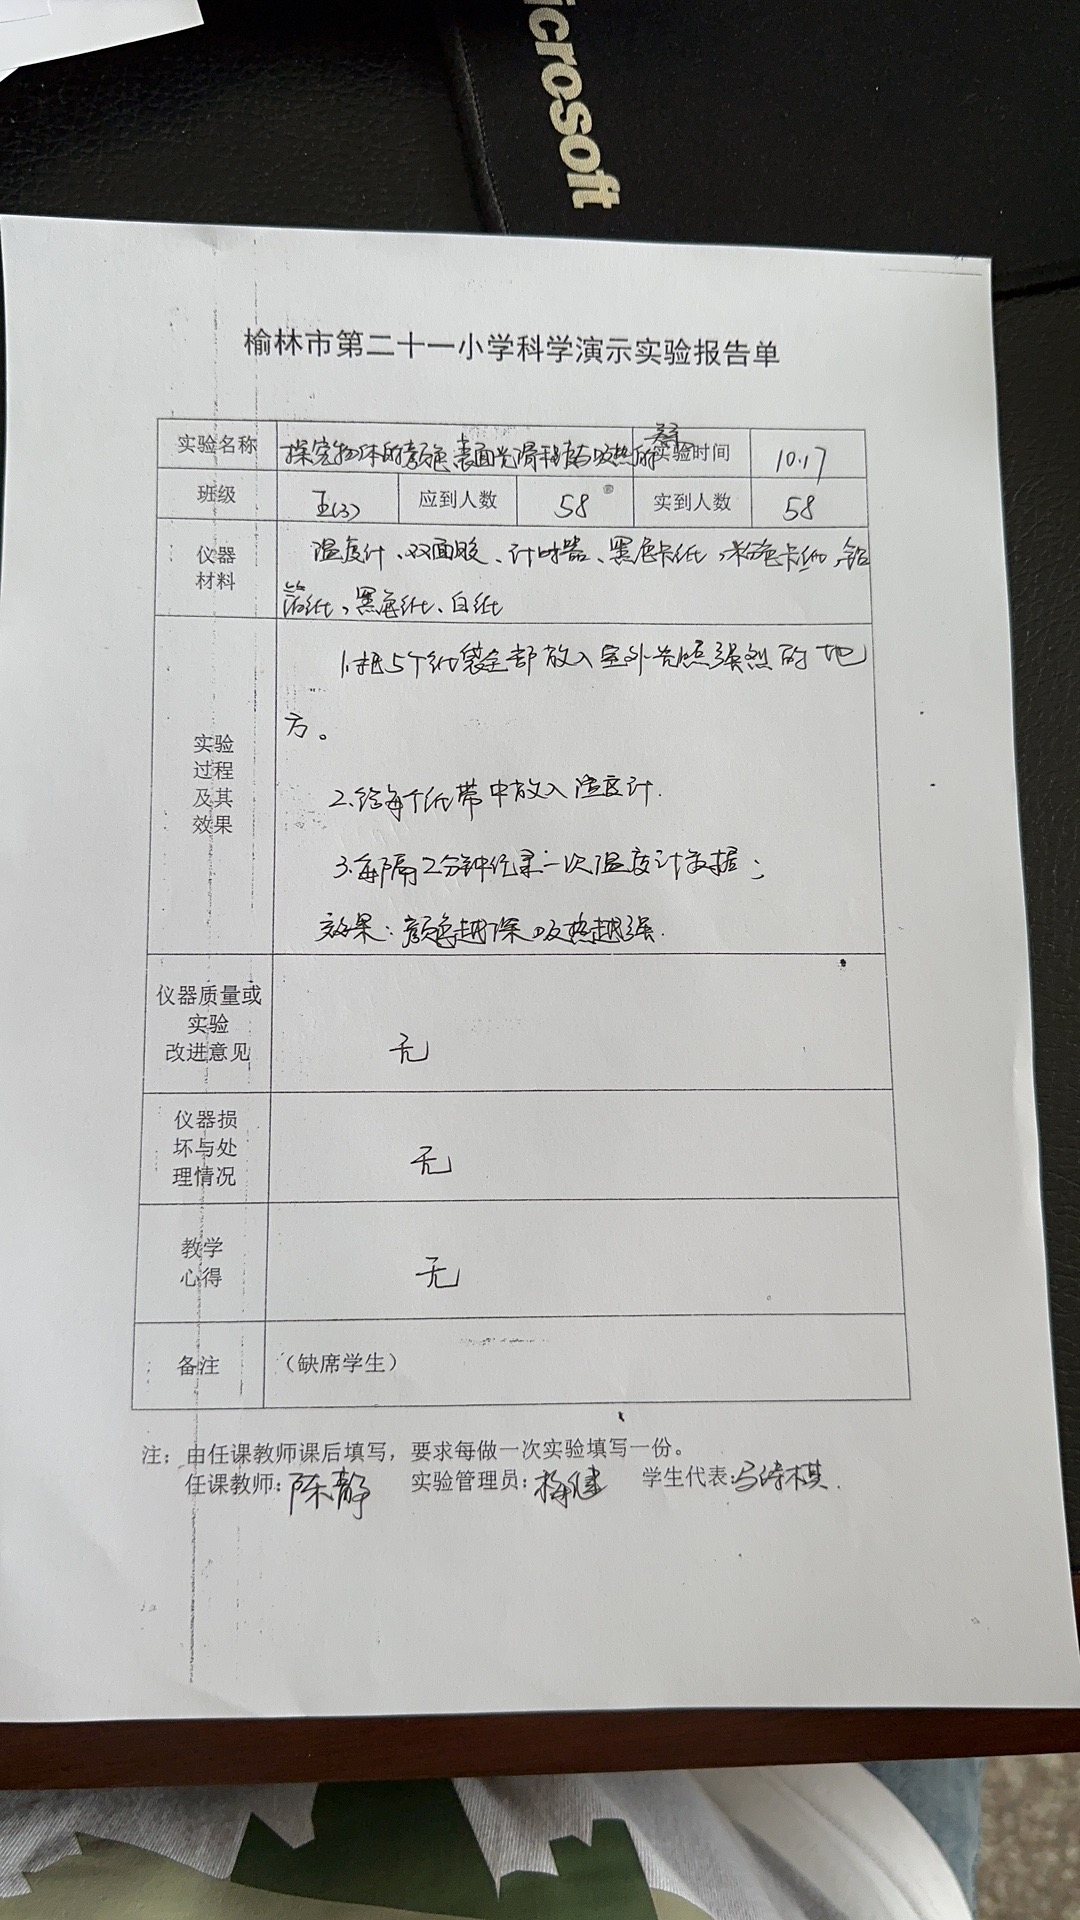 icrosoft
榆林市第二十一小学科学演示实验报告单
实验名称 探究物体的颜色表面光滑程度与吸热的 实验时间 10.17
班级 五(3) 应到人数 58 实到人数 58
仪器
材料
温度计、双面胶、计时器、黑色卡纸、粉色卡纸、铝
箔纸、黑色纸、白纸
实验
过程
及其
效果
1.把5个纸袋全部放入室外光照强烈的地
方。
2.给每个纸带中放入温度计.
3.每隔2分钟纪录一次温度计数据;
效果:颜色越深吸热越强.
仪器质量或
实验
改进意见
无
仪器损
坏与处
理情况
无
教学
心得
无
备注 (缺席学生)
注:由任课教师课后填写,要求每做一次实验填写一份。
任课教师:陈静 实验管理员: 学生代表: